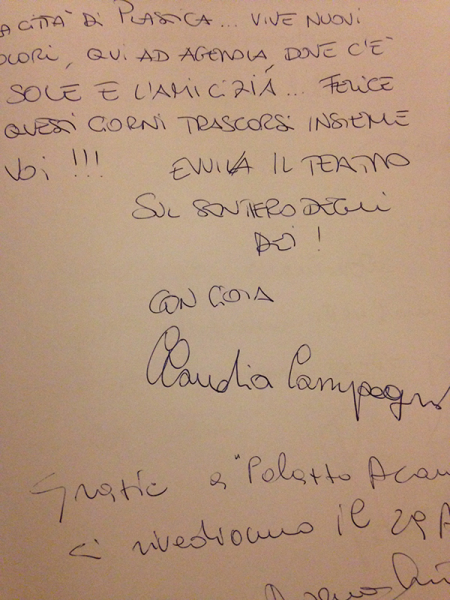 A CITTÀ DI PLASTICA... VIVE NUOVI
OLORI, QUI AD AGEROLA, DOVE C'È
SOLE E L'AMICIZIA... FELICE
QUESTI GIORNI TRASCORSI INSIEME
VOI !!!
EVVIVA IL TEATRO
SUL SENTIERO DEGLI
DEI !
CON GIOIA
Claudia Campagn
Grazie a "Palazzo Acam
ci rivediamo il 29 A